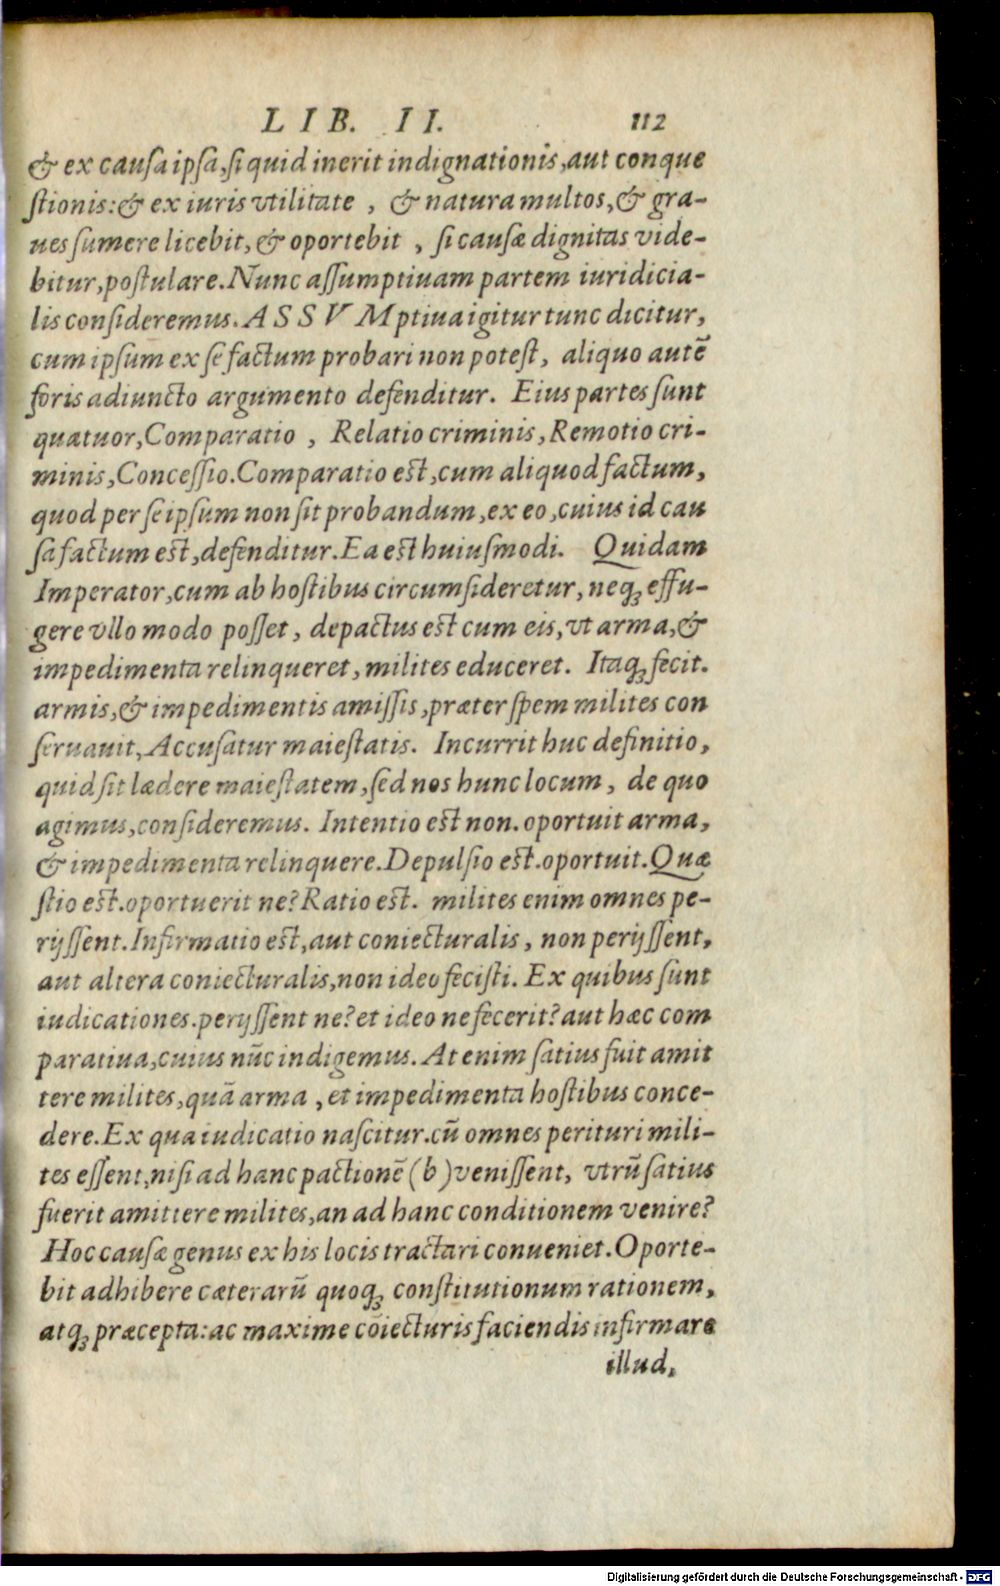 LIB. II. 112
& ex causa ipsa, si quid inerit indignationis, aut conque
stionis: & ex iuris vtilitate , & natura multos, & gra-
ues sumere licebit, & oportebit , si causæ dignitas vide-
bitur, postulare. Nunc assumptiuam partem iuridicia-
lis consideremus. ASSVMptiua igitur tunc dicitur,
cum ipsum ex se factum probari non potest, aliquo autẽ
foris adiuncto argumento defenditur. Eius partes sunt
quatuor, Comparatio , Relatio criminis, Remotio cri-
minis, Concessio. Comparatio est, cum aliquod factum,
quod per se ipsum non sit probandum, ex eo, cuius id cau
sa factum est, defenditur. Ea est huiusmodi. Quidam
Imperator, cum ab hostibus circumsideretur, neqꝫ effu-
gere vllo modo posset, depactus est cum eis, vt arma, &
impedimenta relinqueret, milites educeret. Itaqꝫ fecit.
armis, & impedimentis amissis, præter spem milites con
seruauit, Accusatur maiestatis. Incurrit huc definitio,
quid sit lædere maiestatem, sed nos hunc locum, de quo
agimus, consideremus. Intentio est non. oportuit arma,
& impedimenta relinquere. Depulsio est. oportuit. Quæ
stio est. oportuerit ne? Ratio est. milites enim omnes pe-
rijssent. Infirmatio est, aut coniecturalis, non perijssent,
aut altera coniecturalis, non ideo fecisti. Ex quibus sunt
iudicationes. perijssent ne? et ideo ne fecerit? aut hæc com
paratiua, cuius nũc indigemus. At enim satius fuit amit
tere milites, quã arma , et impedimenta hostibus conce-
dere. Ex qua iudicatio nascitur. cũ omnes perituri mili-
tes essent, nisi ad hanc pactionẽ (b) venissent, vtrũ satius
fuerit amittere milites, an ad hanc conditionem venire?
Hoc causæ genus ex his locis tractari conueniet. Oporte-
bit adhibere cæterarũ quoqꝫ constitutionum rationem,
atqꝫ præcepta: ac maxime cõiecturis faciendis infirmare
illud,
Digitalisierung gefördert durch die Deutsche Forschungsgemeinschaft - DFG